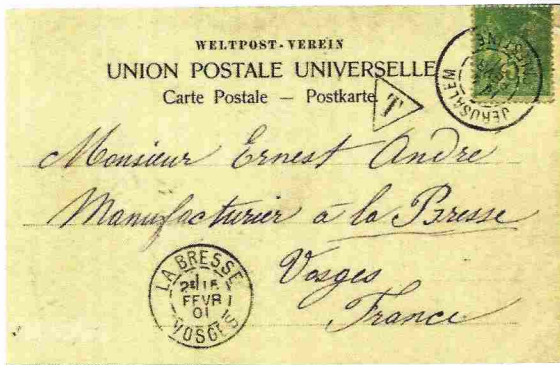 WELTPOST-VEREIN
UNION POSTALE UNIVERSELLE
Carte Postale — Postkarte
T
JERUSALEM
Monsieur Ernest Andre
Manufacturier à la Bresse
Vosges
France
LA BRESSE
FEVR
01
VOSGES